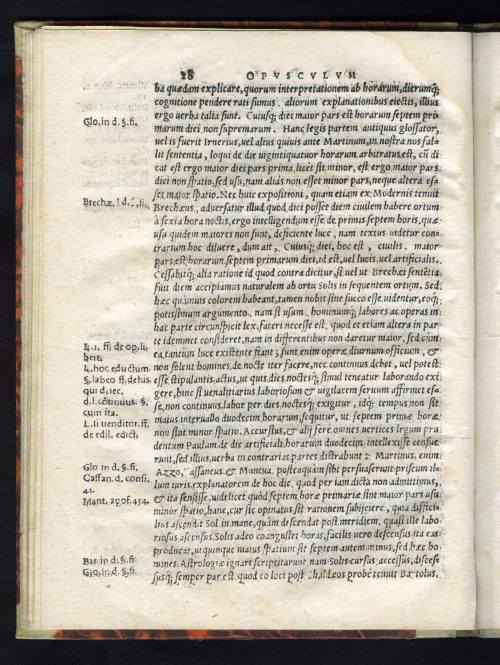 28 OPVSCVLVM
ba quædam explicare, quorum interpretationem ab horarum, dierumq;
cognitione pendere rati sumus, aliorum explanationibus eiectis, illius
ergo uerba talia sunt. Cuiusq; diei maior pars est horarum septem pri
Glo. in d. §. fi.
marum diei non supremarum. Hanc legis partem antiquus glossator,
uel is fuerit Irnerius, uel alius quiuis ante Martinum, in nostra nos fal-
lit sententia, loqui de die uigintiquatuor horarum arbitratus est, cū di
cat est ergo maior diei pars prima, licet sit minor, est ergo maior pars
dici non spatio, sed usu, nam aliàs non esset minor pars, neque altera es-
set maior spatio. Nec huic expositioni, quam etiam ex Modernis tenuit
Brechæ. l d. §. fi.
Brechæus, aduersatur illud, quod dici posset diem ciuilem habere ortum
à sexta hora noctis, ergo intelligendum esse de primis septem horis, quæ
usu quidem maiores non sunt, deficiente luce, nam textus uidetur con-
trarium hoc diluere, dum ait, Cuiusq; diei, hoc est, ciuilis, maior
pars, est horarum septem primarum diei, id est, uel lucis, uel artificialis.
Cessabitq; alia ratione id quod contra dicitur, si uel ut Brechæi sentētia
fuit diem accipiamus naturalem ab ortu Solis in sequentem ortum. Sed
hæc quamuis colorem habeant, tamen nobis sine succo esse uidentur, eoq;
potissimum argumento, nam si usum, hominumq; labores ac operas in
hac parte circunspicit lex, fateri necesse est, quod et etiam altera in par
te idem met consideret, nam in differentibus non daretur maior, sed cùm
L. 1. ff. de op. li.
bert.
ea, tantum luce existente fiant; sunt enim operæ diurnum officium, &
L. hoc edictum
non solent homines, de nocte iter facere, nec continuus debet, uel potest
§. labeo ff. de his
esse stipulantis actus, ut quis dies noctesq; simul teneatur laborando exi
qui deiec.
gere, hinc sit uenalitiarius laboriosum & uigilacem seruum affirmet es-
d. l. cōtinuus. §.
se, non continuus labor per dies noctesq; exigitur, idq; tempus non sit
cum ita.
maius interuallo duodecim horarum, sequitur, ut septem primæ horæ
L. fi uenditor. ff.
non sint minor spatio. Accursius, & alij ferè omnes uertices legum pru
de edil. edict.
dentum Paulum de die artificiali, horarum duodecim intellexisse censue
runt, sed illius, uerba in contrarias partes distrabunt: Martinus, enim
Glo in d. §. fi.
Azzo, Cassaneus, & Mantua, postea quàm sibi persuaserunt priscum il-
Cassan. d. consi.
lum iuris explanatorem de hoc die, quod per iam dicta non admittimus,
42.
Mant. apof. 454.
& ita sensisse, uidelicet quòd septem horæ primariæ sint maior pars usu,
minor spatio, hanc, cur sic opinatus sit rationem subijciere, quia difficī-
lius ascendat Sol in mane, quàm descendat post meridiem, quasi ille labo
riosus ascensus Solis adeo coangustet horas, facilis uero descensus ita eas
producat, ut quinque maius spatium sit septem autem minus, sed hæc ho
Bar. in d. §. fi.
mines Astrologiæ ignari scriptitarunt, nam Solis cursus, accessus, disces-
Glo. in d. §. fi.
susq; semper par est, quod eo loci post Chaldæos probè tenuit Bartolus,